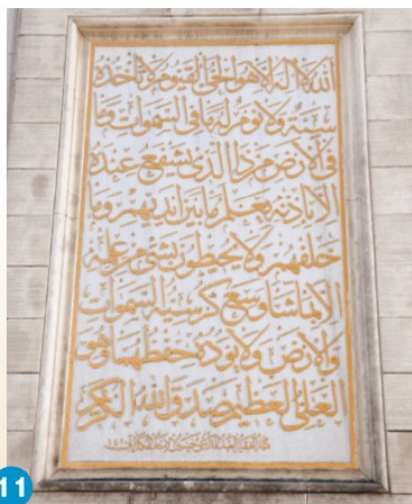 الله لا اله الا هو الحي القيوم لا تأخذه
سنة ولا نوم له ما في السموات وما
في الارض من ذا الذي يشفع عنده
الا باذنه يعلم ما بين ايديهم وما
خلفهم ولا يحيطون بشئ من علمه
الا بما شاء وسع كرسيه السموات
والارض ولا يؤده حفظهما وهو
العلي العظيم صدق الله الكريم
11